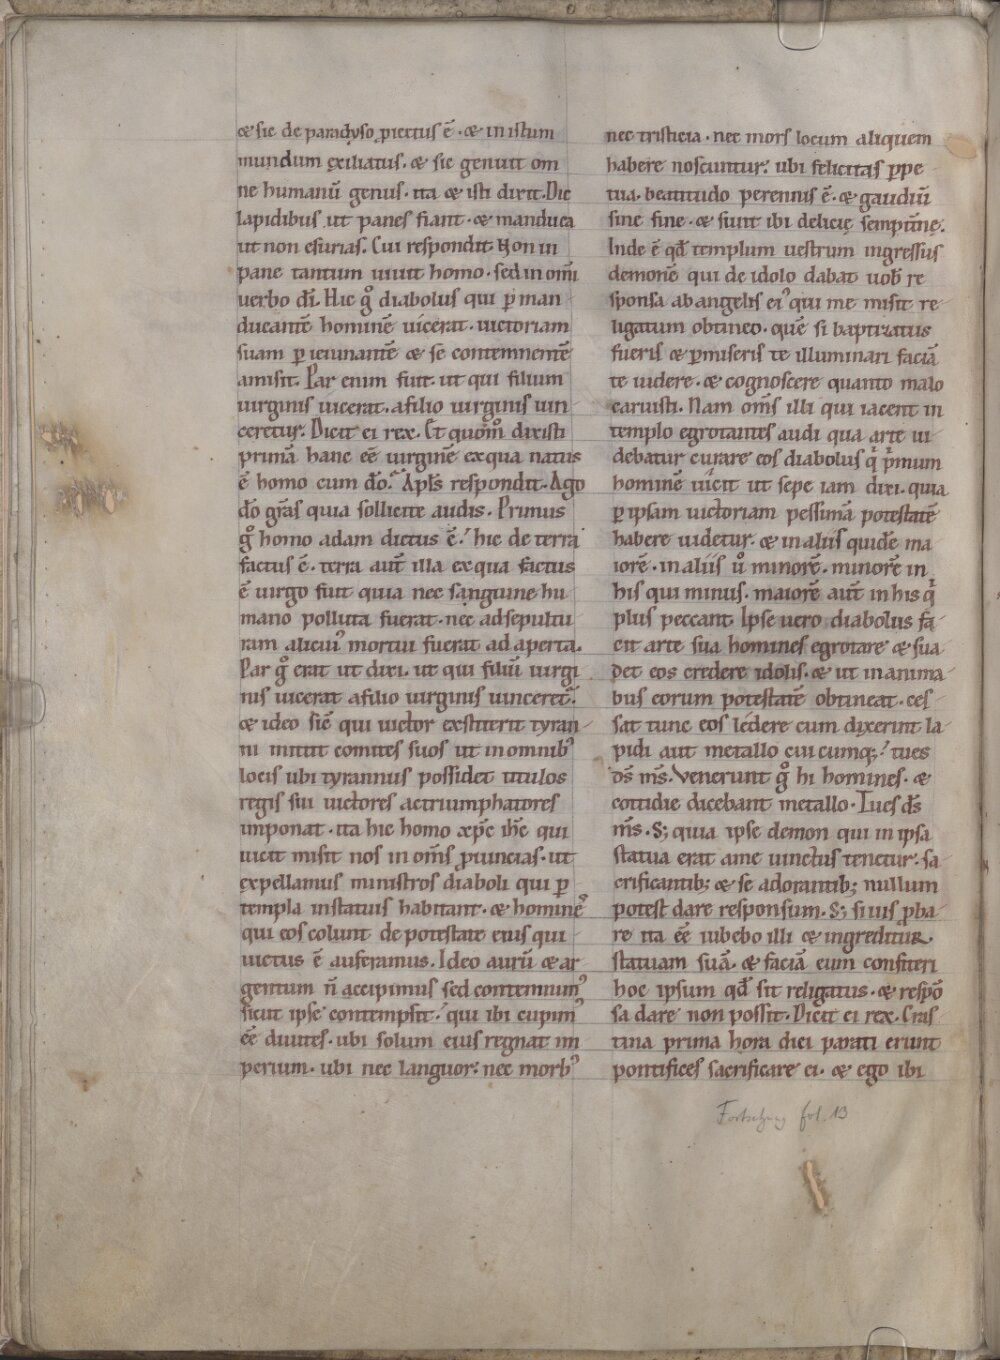 ⁊ sic de paradyso ꝓiectus ē · ⁊ in istum
mundum ęxiliatus. ⁊ sic genuit om
ne humanū genus. ita ⁊ isti dixit. Dic
lapidibus ut panes fiant · ⁊ manduca
ut non esurias. Cui respondit. Non in
pane tantum uiuit homo · sed in om̄i
uerbo dī. Hic g̊ diabolus qui ꝑ man
ducantē hominē uicerat. uictoriam
suam ꝑ ieiunantē ⁊ se contemnentē
amisit. Par enim fuit. ut qui filium
uirginis uicerat. a filio uirginis uin
ceretur. Dicit ei rex. Et quom̊ dixisti
primā hanc eē uirginē ex qua natus
ē homo cum dō. Apl̄s respondit. Ago
dō gr̄as quia sollicite audis. Primus
g̊ homo adam dictus ē. hic de terra
factus ē. terra aut̄ illa ex qua factus
ē uirgo fiut quia nec sanguine hu
mano polluta fuerat. nec ad sepultu
ram alicui᾽ mortui fuerat ad aperta.
Par g̊ erat ut dixi. ut qui filiū uirgi
nis uicerat a filio uirginis uinceret᷑.
⁊ ideo sic̄ qui uictor exstiterit tyran
ni mittit comites suos ut in omnib᾽
locis ubi tyrannus possidet titulos
regis sui uictores ac triumphatores
imponat. ita hic homo xp̄c ih̄c qui
uicit misit nos in om̄s ꝓuincias. ut
expellamus ministros diaboli qui ꝑ
templa in statuis habitant. ⁊ homines
qui eos colunt de potestate eius qui
uictus ē auferamus. Ideo aurū ⁊ ar
gentum n̄ accipimus sed contemnim᾽
sicut ipse contempsit. qui ibi cupim᾽
eē diuites. ubi solum eius regnat im
perium. ubi nec languor. nec morb᾽
nec tristicia. nec mors locum aliquem
habere noscuntur. ubi felicitas ꝑpe
tua. beatitudo perennis ē. ⁊ gaudiū
sine fine. ⁊ sunt ibi delicię sempit̄nę.
Inde ē qd̄ templum uestrum ingressus
demonē qui de idolo dabat uob̄ re
sponsa ab angelis ei᾽ qui me misit re
ligatum obtineo. quē si baptizatus
fueris ⁊ ꝑmiseris te illuminari faciā
te uidere. ⁊ cognoscere quanto malo
caruisti. Nam om̄s illi qui iacent in
templo egrotantes audi qua arte ui
debatur curare eos diabolus q̄ p̄mum
hominē uicit ut sepe iam dixi. quia
ꝑ ipsam uictoriam pessimā potestatē
habere uidetur. ⁊ in aliis quidē ma
iorē. in aliis ů minorē. minorē in
his qui minus. maiorē aut̄ in his q̄
plus peccant. Ipse uero diabolus fa
cit arte sua homines egrotare ⁊ sua
det eos credere idolis. ⁊ ut in anima
bus eorum potestatē obtineat. ces
sat tunc eos ledere cum dixerint la
pidi aut metallo cuicumq;. tu es
d̄s m̄s. Venerunt g̊ hi homines. ⁊
cottidie dicebant metallo. Tu es d̄s
m̄s. S; quia ipse demon qui in ipsa
statua erat a me uinctus tenetur. sa
crificantib; ⁊ se adorantib; nullum
potest dare responsum. S; si uis ꝓba
re ita eē iubebo illi ⁊ ingreditur
statuam suā. ⁊ faciā eum confiteri
hoc ipsum qd̄ sit religatus. ⁊ respō
sa dare non possit. Dicit ei rex. Cras
tina prima hora diei parati erunt
pontifices sacrificare ei. ⁊ ego ibi
Fortsetzung fol. 13